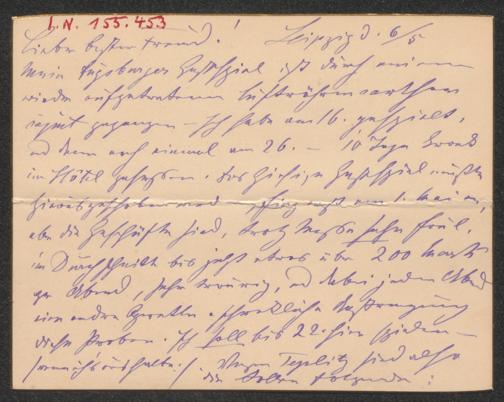 I.N. 155.453
Lieber bester Freund! Leipzig d. 6/5
Mein Augsburger Gastspiel ist durch meinen
wieder aufgetretenen Luftröhrencarthar
gegangen – Ich habe am 16. gespielt,
und dann noch einmal am 26. – 10 Tage krank
im Hôtel gesessen. Das hiesige Gastspiel mußte
hinausgeschoben werden fing erst am 1. Mai an,
aber die Geschäfte sind, trotz Messe sehr faul,
im Durchschnitt bis jetzt etwas über 200 Mark
per Abend, sehr traurig, und dabei jeden Abend
eine andre Rolle schreckliche Anstrengung
diese Proben. Ich soll bis 22. hier spielen –
/: wenn ich's aushalte :/. Wegen Teplitz sind also
die Rollen folgende: